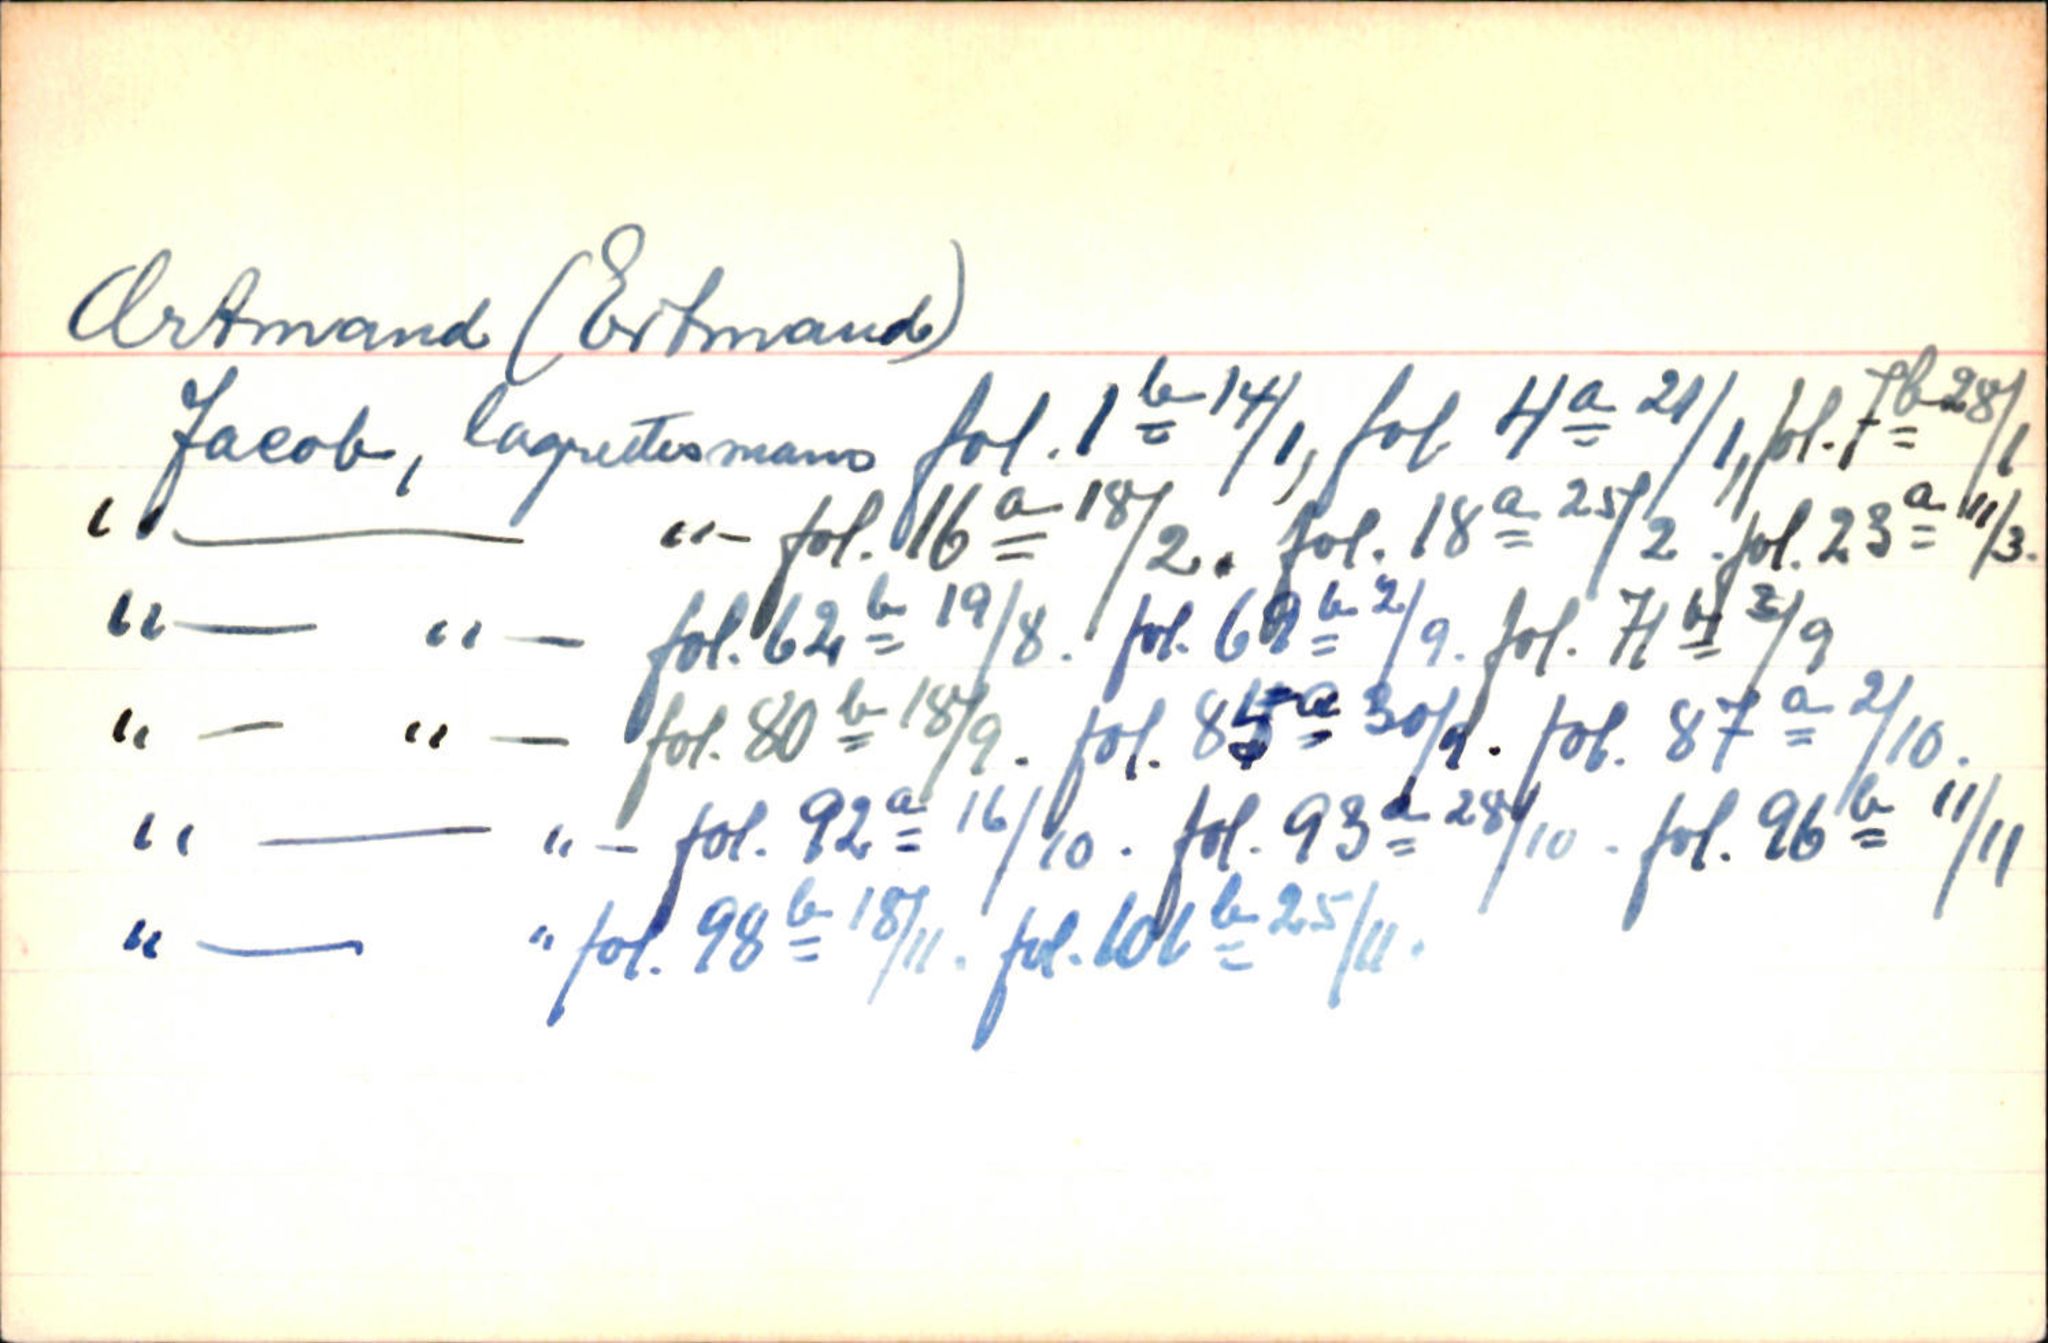 Artmand (Ertmand)
Jacob, lagrettesmann fol. 1 b 14/1, fol. 4 a 21/1, fol. 7 b 28/1
" — " — fol. 16 a 18/2. fol. 18 a 25/2. fol. 23 a 11/3.
" — " — fol. 62 b 19/8. fol. 69 b 2/9. fol. 71 b 3/9
" — " — fol. 80 b 18/9. fol. 85 a 30/9. fol. 87 a 2/10.
" — " — fol. 92 a 16/10. fol. 93 a 28/10. fol. 96 b 11/11
" — " fol. 98 b 18/11. fol. 101 b 25/11.